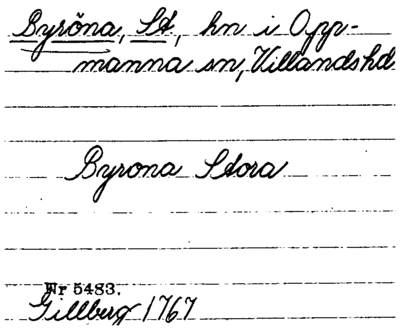 Byröna, St, hn i Opp-
manna sn, Villandshd
Byrona Stora
Nr 5483.
Gillberg 1767